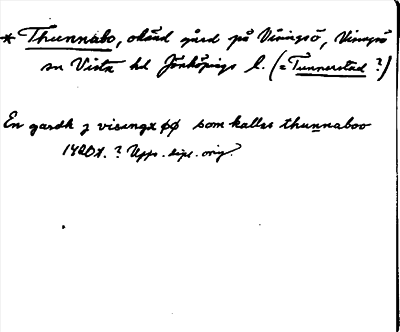 * Thunnabo, okänd gård på Visingsö, Visingsö
sn Vista hd Jönköpings l. (= Tunnerstad ?)
En gardh j visingx øø som kallas thunnaboo
1420t. ? Upps. dipl. orig.